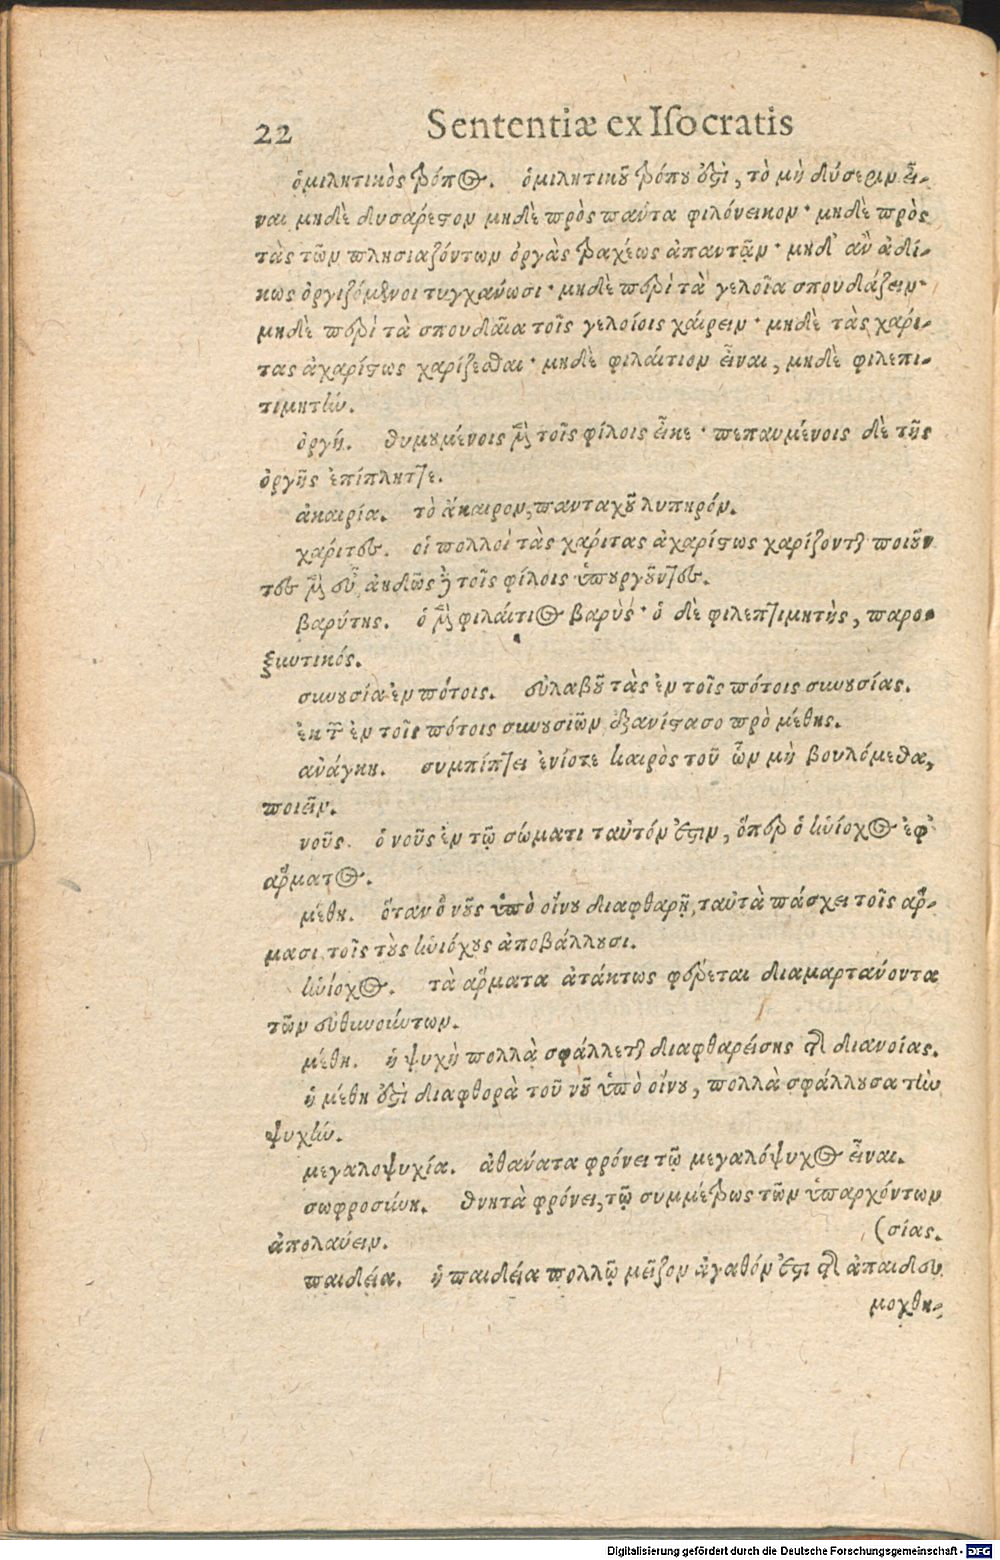 22 Sententiæ ex Iſocratis
ὁμιλητικὸς τρόπος. ὁμιλητικοῦ τρόπου ἐστὶ, τὸ μὴ δύσεριν εἶ-
ναι μηδὲ δυσάρεστον μηδὲ πρὸς πάντα φιλόνεικον· μηδὲ πρὸς
τὰς τῶν πλησιαζόντων ὀργὰς τραχέως ἀπαντᾷν· μηδ' ἂν ἀδί-
κως ὀργιζόμενοι τυγχάνωσι· μηδὲ περὶ τὰ γελοῖα σπουδάζειν·
μηδὲ περὶ τὰ σπουδαῖα τοῖς γελοίοις χαίρειν· μηδὲ τὰς χάρι-
τας ἀχαρίστως χαρίζεσθαι· μηδὲ φιλαίτιον εἶναι, μηδὲ φιλεπι-
τιμητήν.
ὀργή. θυμουμένοις μὲν τοῖς φίλοις εἶκε· πεπαυμένοις δὲ τῆς
ὀργῆς ἐπίπληττε.
ἀκαιρία. τὸ ἄκαιρον, πανταχοῦ λυπηρόν.
χάριτες. οἱ πολλοὶ τὰς χάριτας ἀχαρίστως χαρίζονται ποιοῦν
τες μὲν οὖν, ἀηδῶς δὲ τοῖς φίλοις ὑπουργοῦντες.
βαρύτης. ὁ μὲν φιλαίτιος βαρύς· ὁ δὲ φιλεπιτιμητὴς, παρο-
ξυντικός.
συνουσία ἐν πότοις. εὐλαβοῦ τὰς ἐν τοῖς πότοις συνουσίας.
ἐκ τῶν ἐν τοῖς πότοις συνουσιῶν, ἐξανίστασο πρὸ μέθης.
ἀνάγκη. συμπίπτει ἐνίοτε καιρὸς τοῦ ὧν μὴ βουλόμεθα,
ποιεῖν.
νοῦς. ὁ νοῦς ἐν τῷ σώματι ταὐτόν ἐστιν, ὅπερ ὁ ἡνίοχος ἐφ'
ἅρματος.
μέθη. ὅταν ὁ νοῦς ὑπὸ οἴνου διαφθαρῇ, ταὐτὰ πάσχει τοῖς ἅρ-
μασι τοῖς τοὺς ἡνιόχους ἀποβάλλουσι.
ἡνίοχος. τὰ ἅρματα ἀτάκτως φέρεται διαμαρτάνοντα
τῶν εὐθυνούντων.
μέθη. ἡ ψυχὴ πολλὰ σφάλλεται διαφθαρείσης τῆς διανοίας.
ἡ μέθη ἐστὶ διαφθορὰ τοῦ νοῦ ὑπὸ οἴνου, πολλὰ σφάλλουσα τὴν
ψυχήν.
μεγαλοψυχία. ἀθάνατα φρόνει τῷ μεγαλόψυχος εἶναι.
σωφροσύνη. θνητὰ φρόνει, τῷ συμμέτρως τῶν ὑπαρχόντων
ἀπολαύειν. (σίας.
παιδεία. ἡ παιδεία πολλῷ μεῖζον ἀγαθόν ἐστι τῆς ἀπαιδευ
μοχθη-
Digitalisierung gefördert durch die Deutsche Forschungsgemeinschaft - DFG